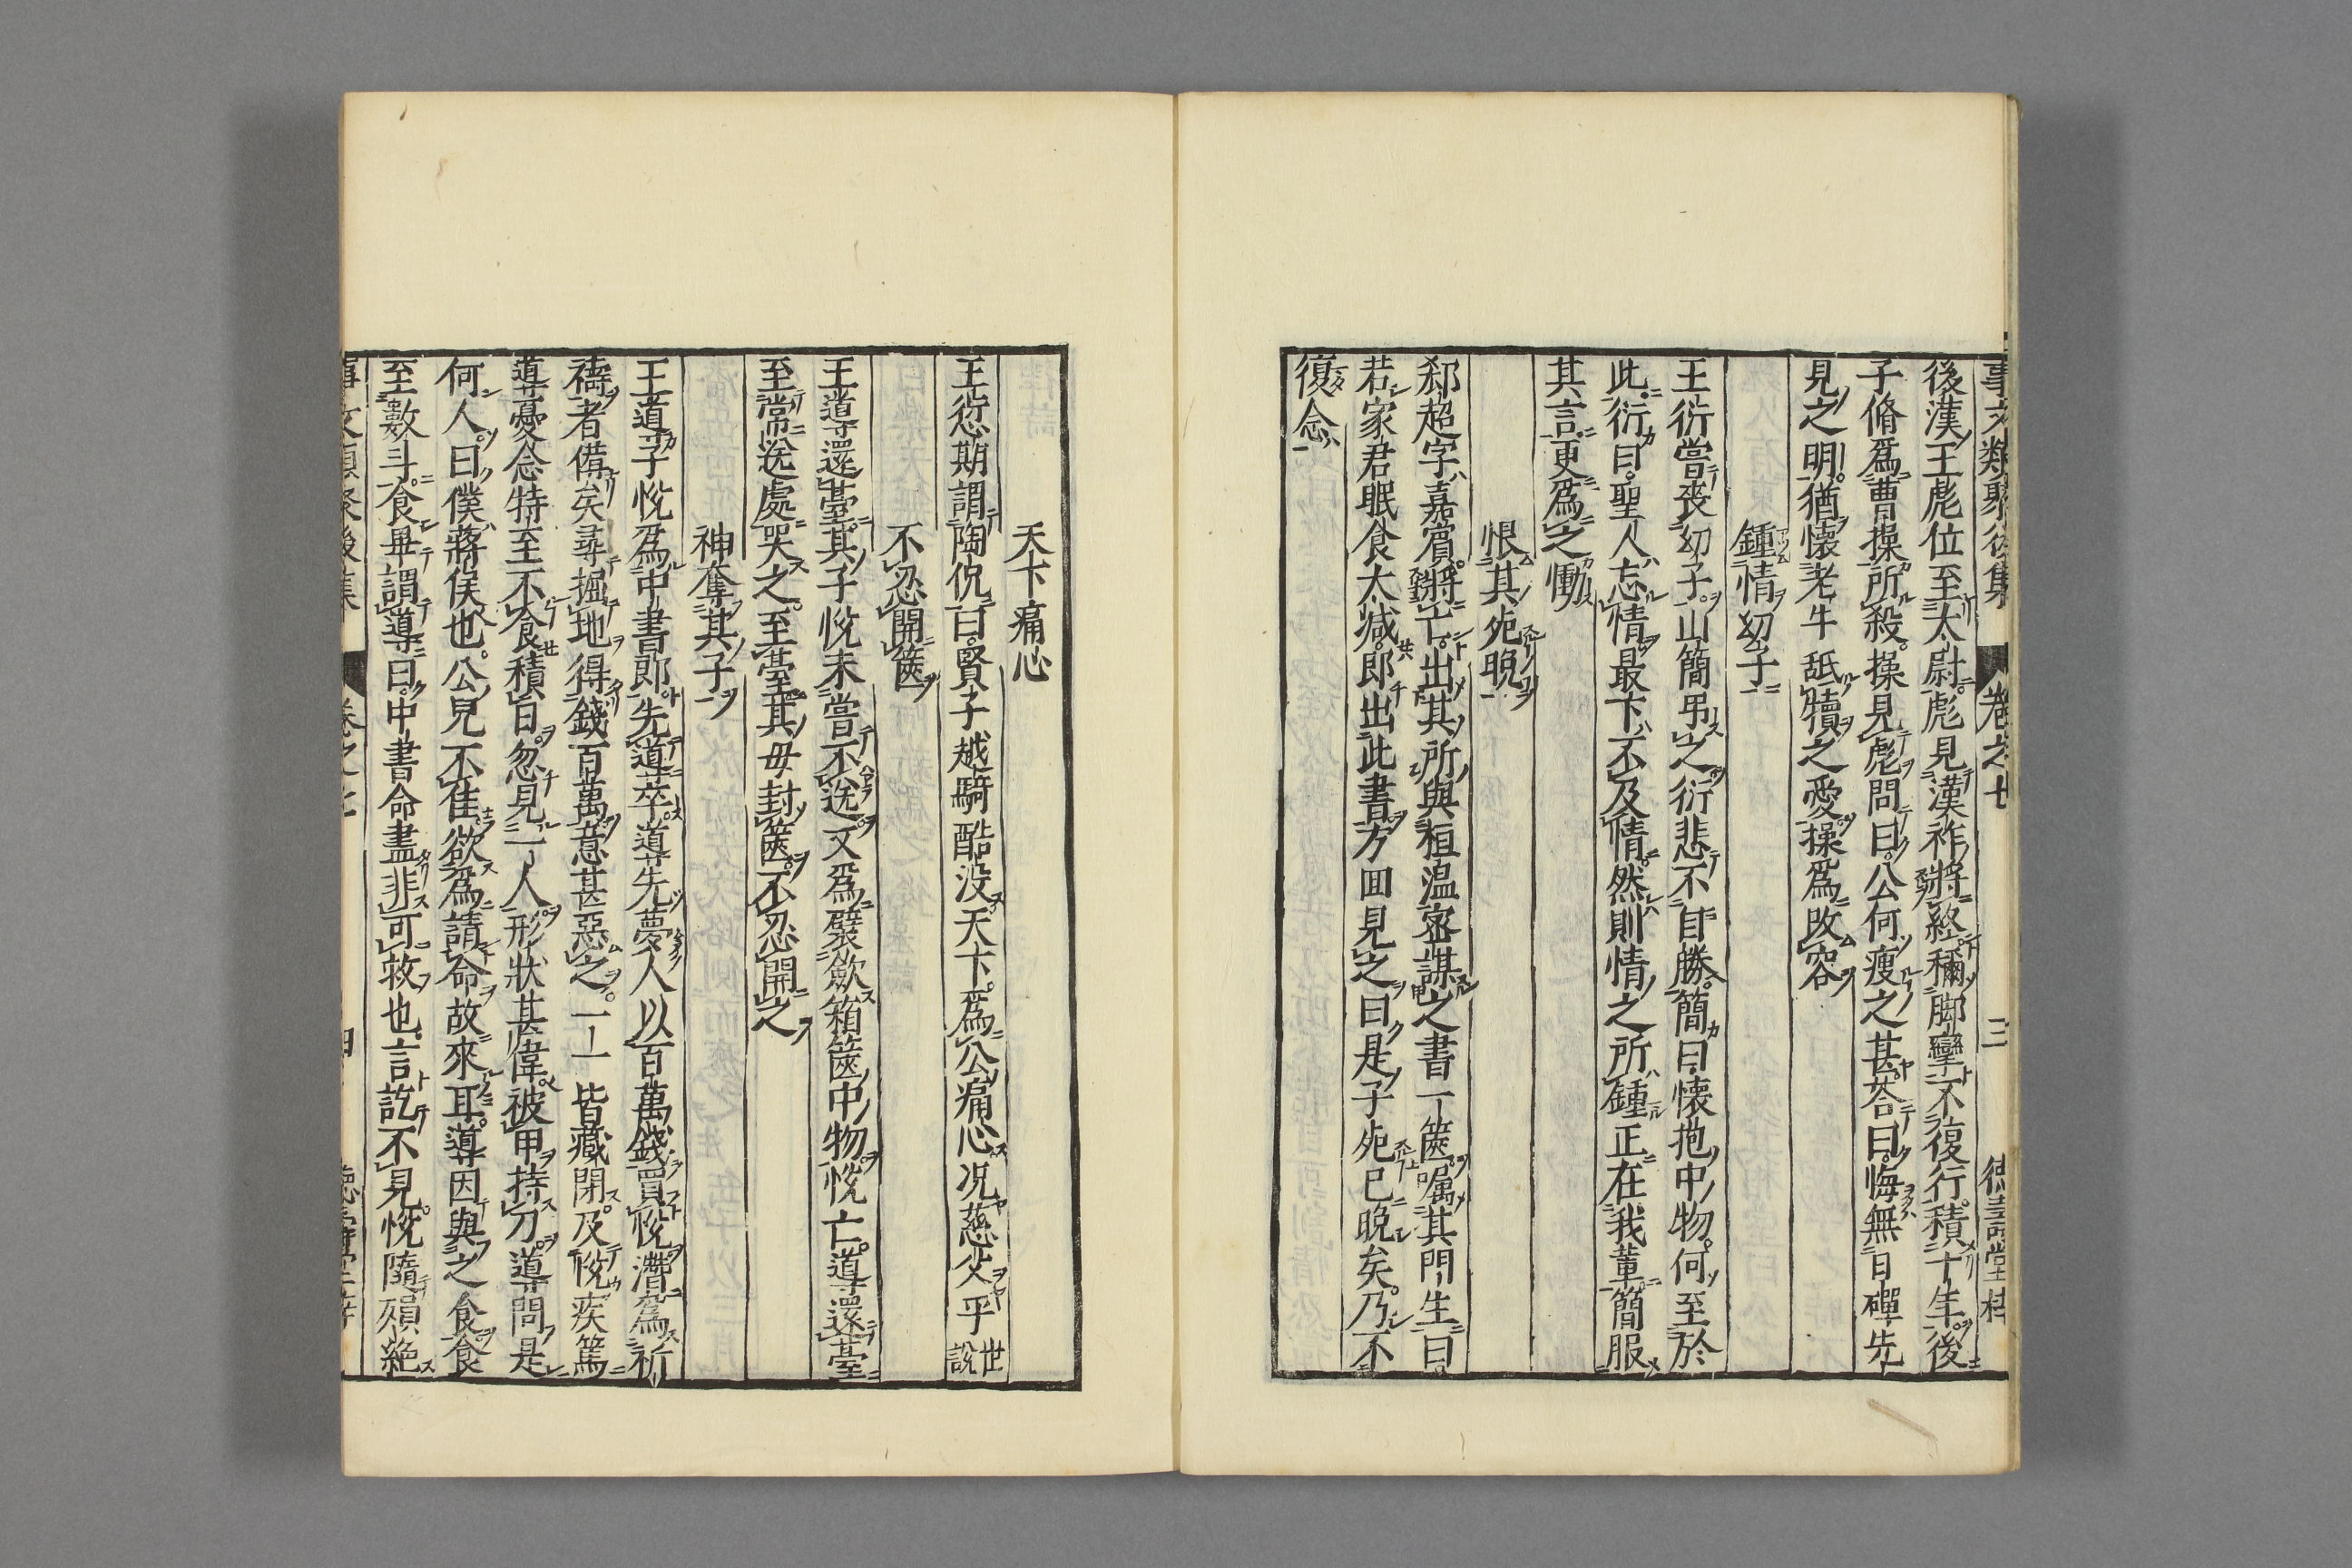 事文類聚後集 卷之七 三 德壽堂梓
後漢王彪位至太尉彪見漢祚將終稱脚攣不復行積十年後
子脩爲曹操所殺操見彪問曰公何瘦之甚荅曰悔無日磾先
見之明猶懷老牛舐犢之愛操爲改容
鍾情幼子
王衍嘗喪幼子山簡吊之衍悲不自勝簡曰懐抱中物何至於
此衍曰聖人忘情最下不及情然則情之所鍾正在我輩簡服
其言更爲之慟
恨其死晚
郄超字嘉賓將亡出其所與桓温密謀之書一篋囑其門生曰
若家君眠食太减即出此書方回見之曰是子死已晚矣乃不
復念
天下痛心
王愆期謂陶侃曰賢子越騎酷没天下爲公痛心况慈父乎 世說
不忍開篋
王導還臺其子恱未嘗不送又爲襞歛箱篋中物恱亡導還臺
至常送處哭之至臺其母封篋不忍開之
神奪其子
王導子恱爲中書郎先道卒道先夢人以百萬錢買恱潛爲祈
禱者備矣尋掘地得錢百萬意甚惡之一一皆藏閉及恱疾篤
導憂念特至不食積日忽見一人形狀甚偉被甲持刀導問是
何人曰僕蔣侯也公兒不佳欲爲請命故來耳導因與之食食
至數斗食畢謂導曰中書命盡非可救也言訖不見恱隨殞絶
事文類聚後集 卷之七 四 德壽堂梓